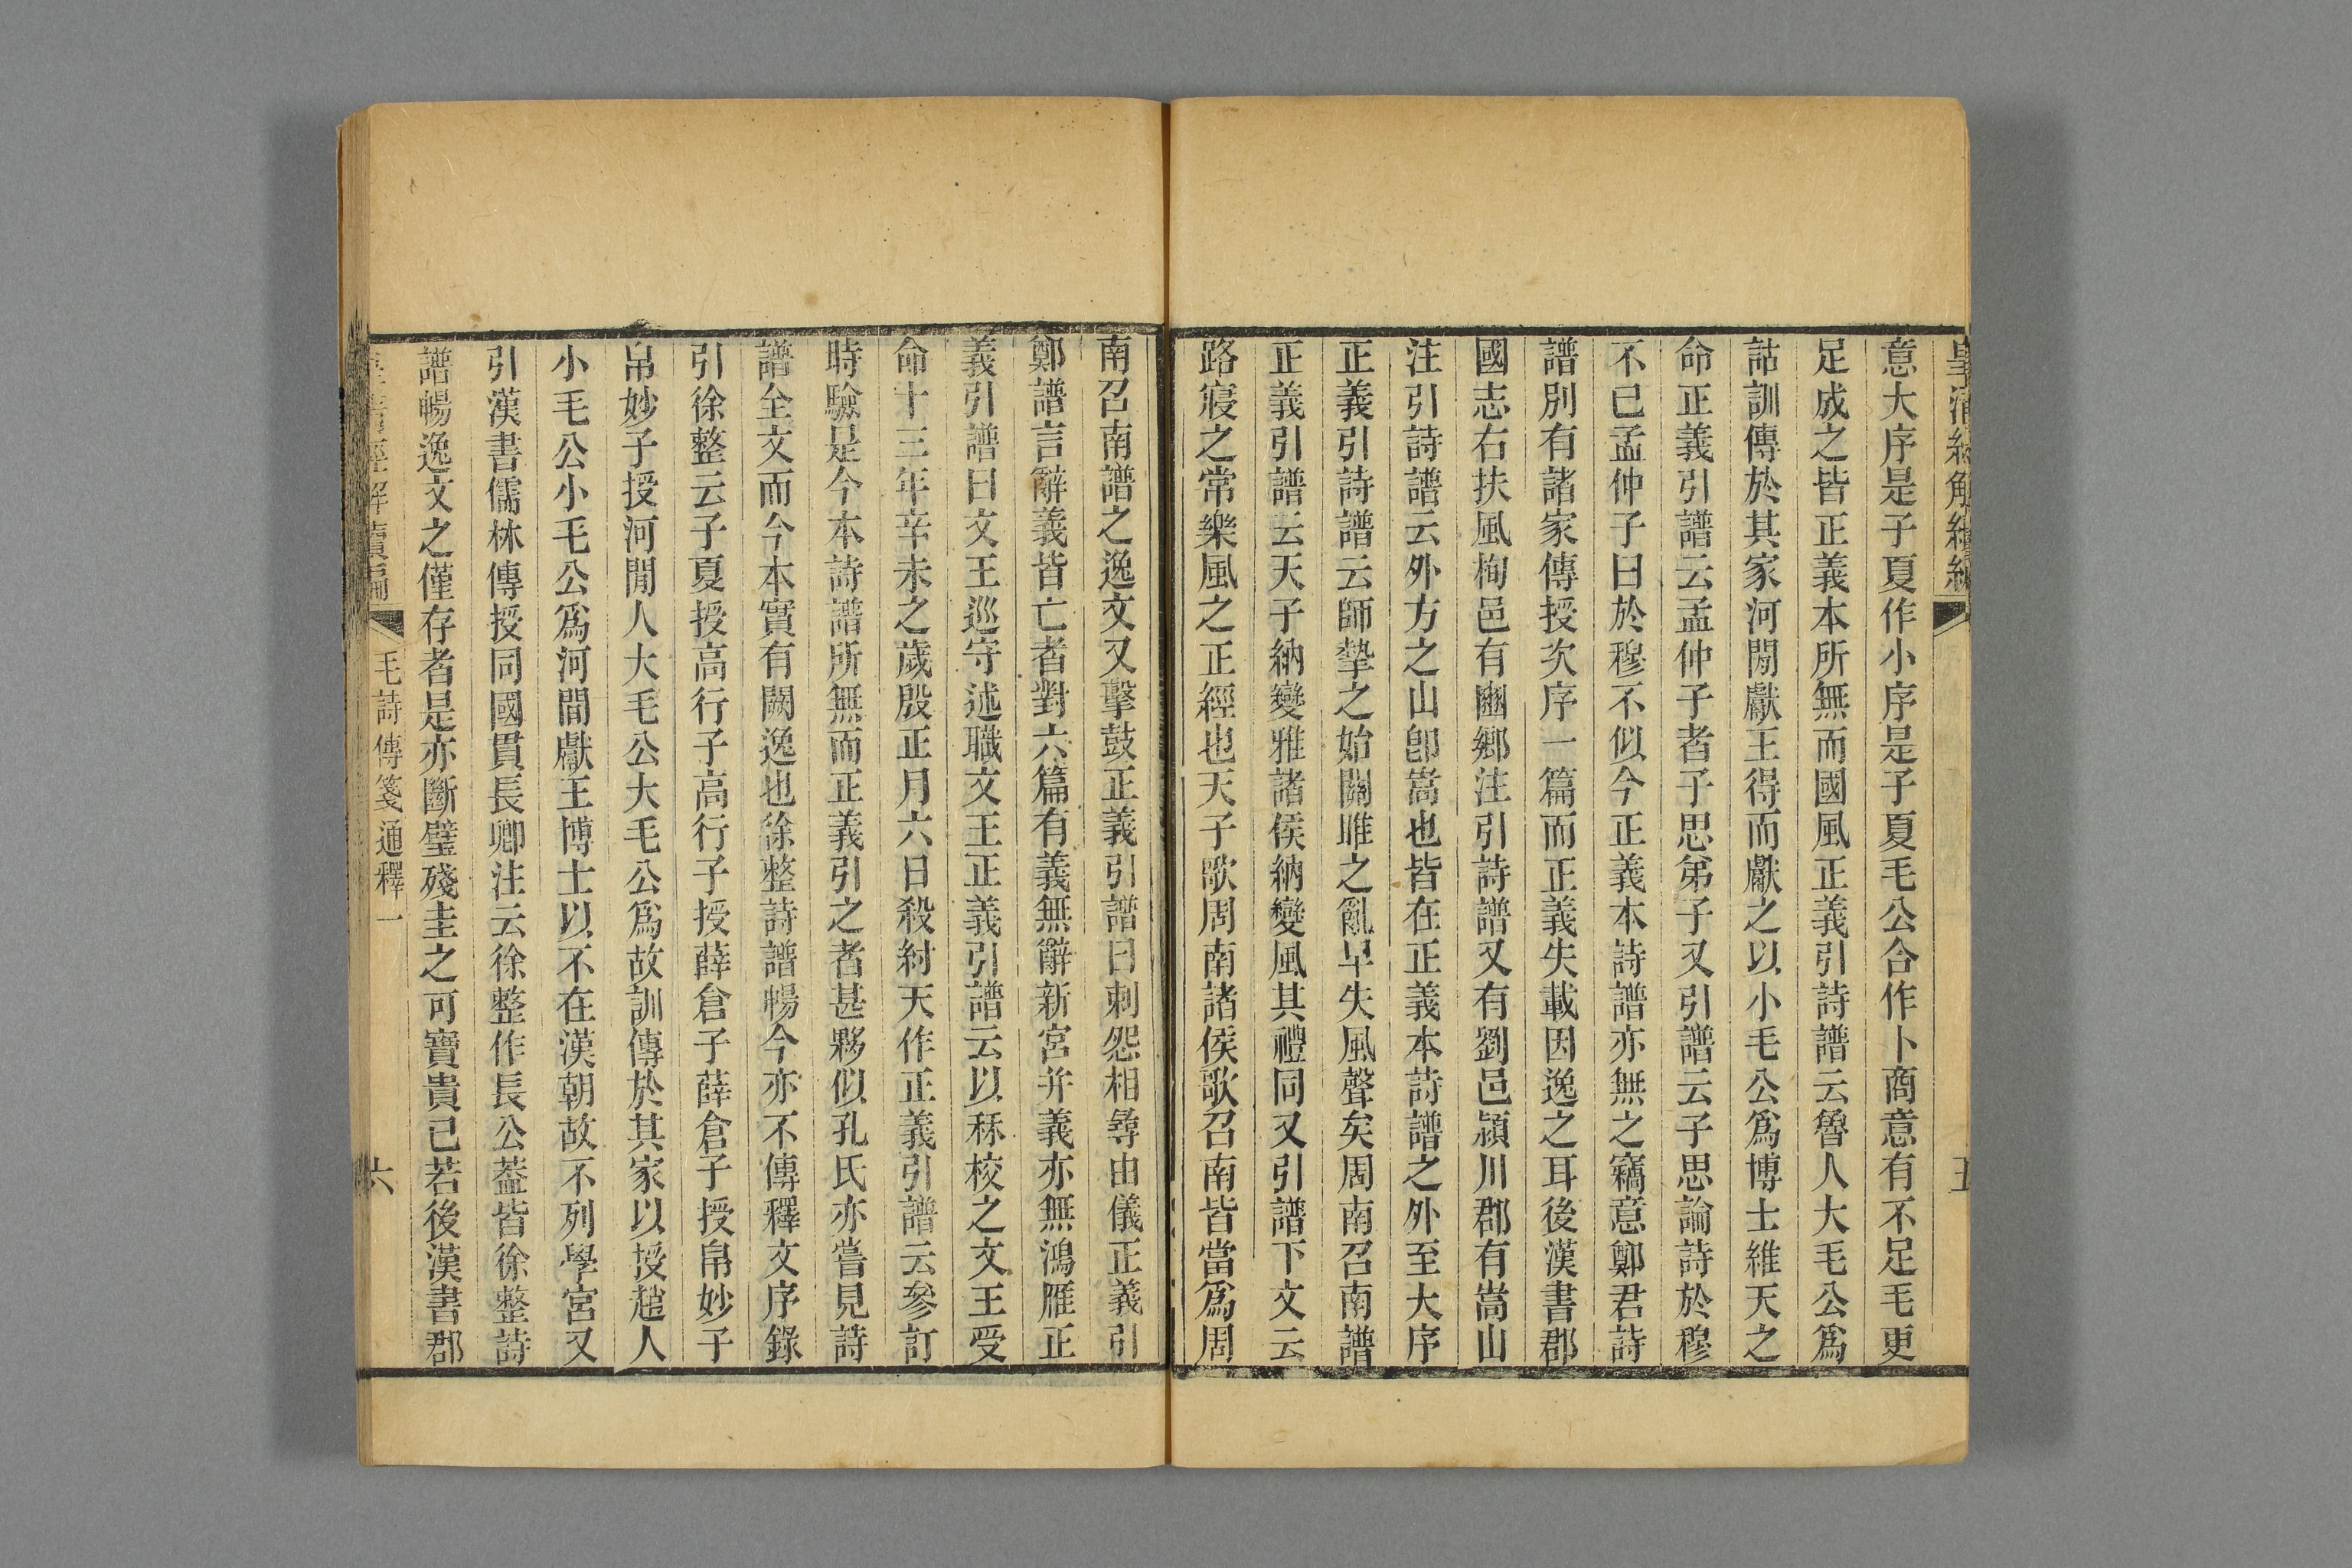 皇清經解續編
五
意大序是子夏作小序是子夏毛公合作卜商意有不足毛更
足成之皆正義本所無而國風正義引詩譜云魯人大毛公爲
詁訓傳於其家河閒獻王得而獻之以小毛公爲博士維天之
命正義引譜云孟仲子者子思弟子又引譜云子思論詩於穆
不已孟仲子曰於穆不似今正義本詩譜亦無之竊意鄭君詩
譜別有諸家傳授次序一篇而正義失載因逸之耳後漢書郡
國志右扶風栒邑有豳鄉注引詩譜又有劉邑潁川郡有嵩山
注引詩譜云外方之山卽嵩也皆在正義本詩譜之外至大序
正義引詩譜云師摯之始關雎之亂早失風聲矣周南召南譜
正義引譜云天子納變雅諸侯納變風其禮同又引譜下文云
路寢之常樂風之正經也天子歌周南諸侯歌召南皆當爲周
南召南譜之逸文又擊鼓正義引譜曰刺怨相尋由儀正義引
鄭譜言辭義皆亡者對六篇有義無辭新宮并義亦無鴻雁正
義引譜曰文王巡守述職文王正義引譜云以秝校之文王受
命十三年辛未之歲殷正月六日殺紂天作正義引譜云參訂
時驗是今本詩譜所無而正義引之者甚夥似孔氏亦嘗見詩
譜全文而今本實有闕逸也徐整詩譜暢今亦不傳釋文序錄
引徐整云子夏授高行子高行子授薛倉子薛倉子授帛妙子
帛妙子授河閒人大毛公大毛公爲故訓傳於其家以授趙人
小毛公小毛公爲河間獻王博士以不在漢朝故不列學宮又
引漢書儒林傳授同國貫長卿注云徐整作長公葢皆徐整詩
譜暢逸文之僅存者是亦斷璧殘圭之可寶貴已若後漢書郡
皇清經解續編
毛詩傳箋通釋一
六